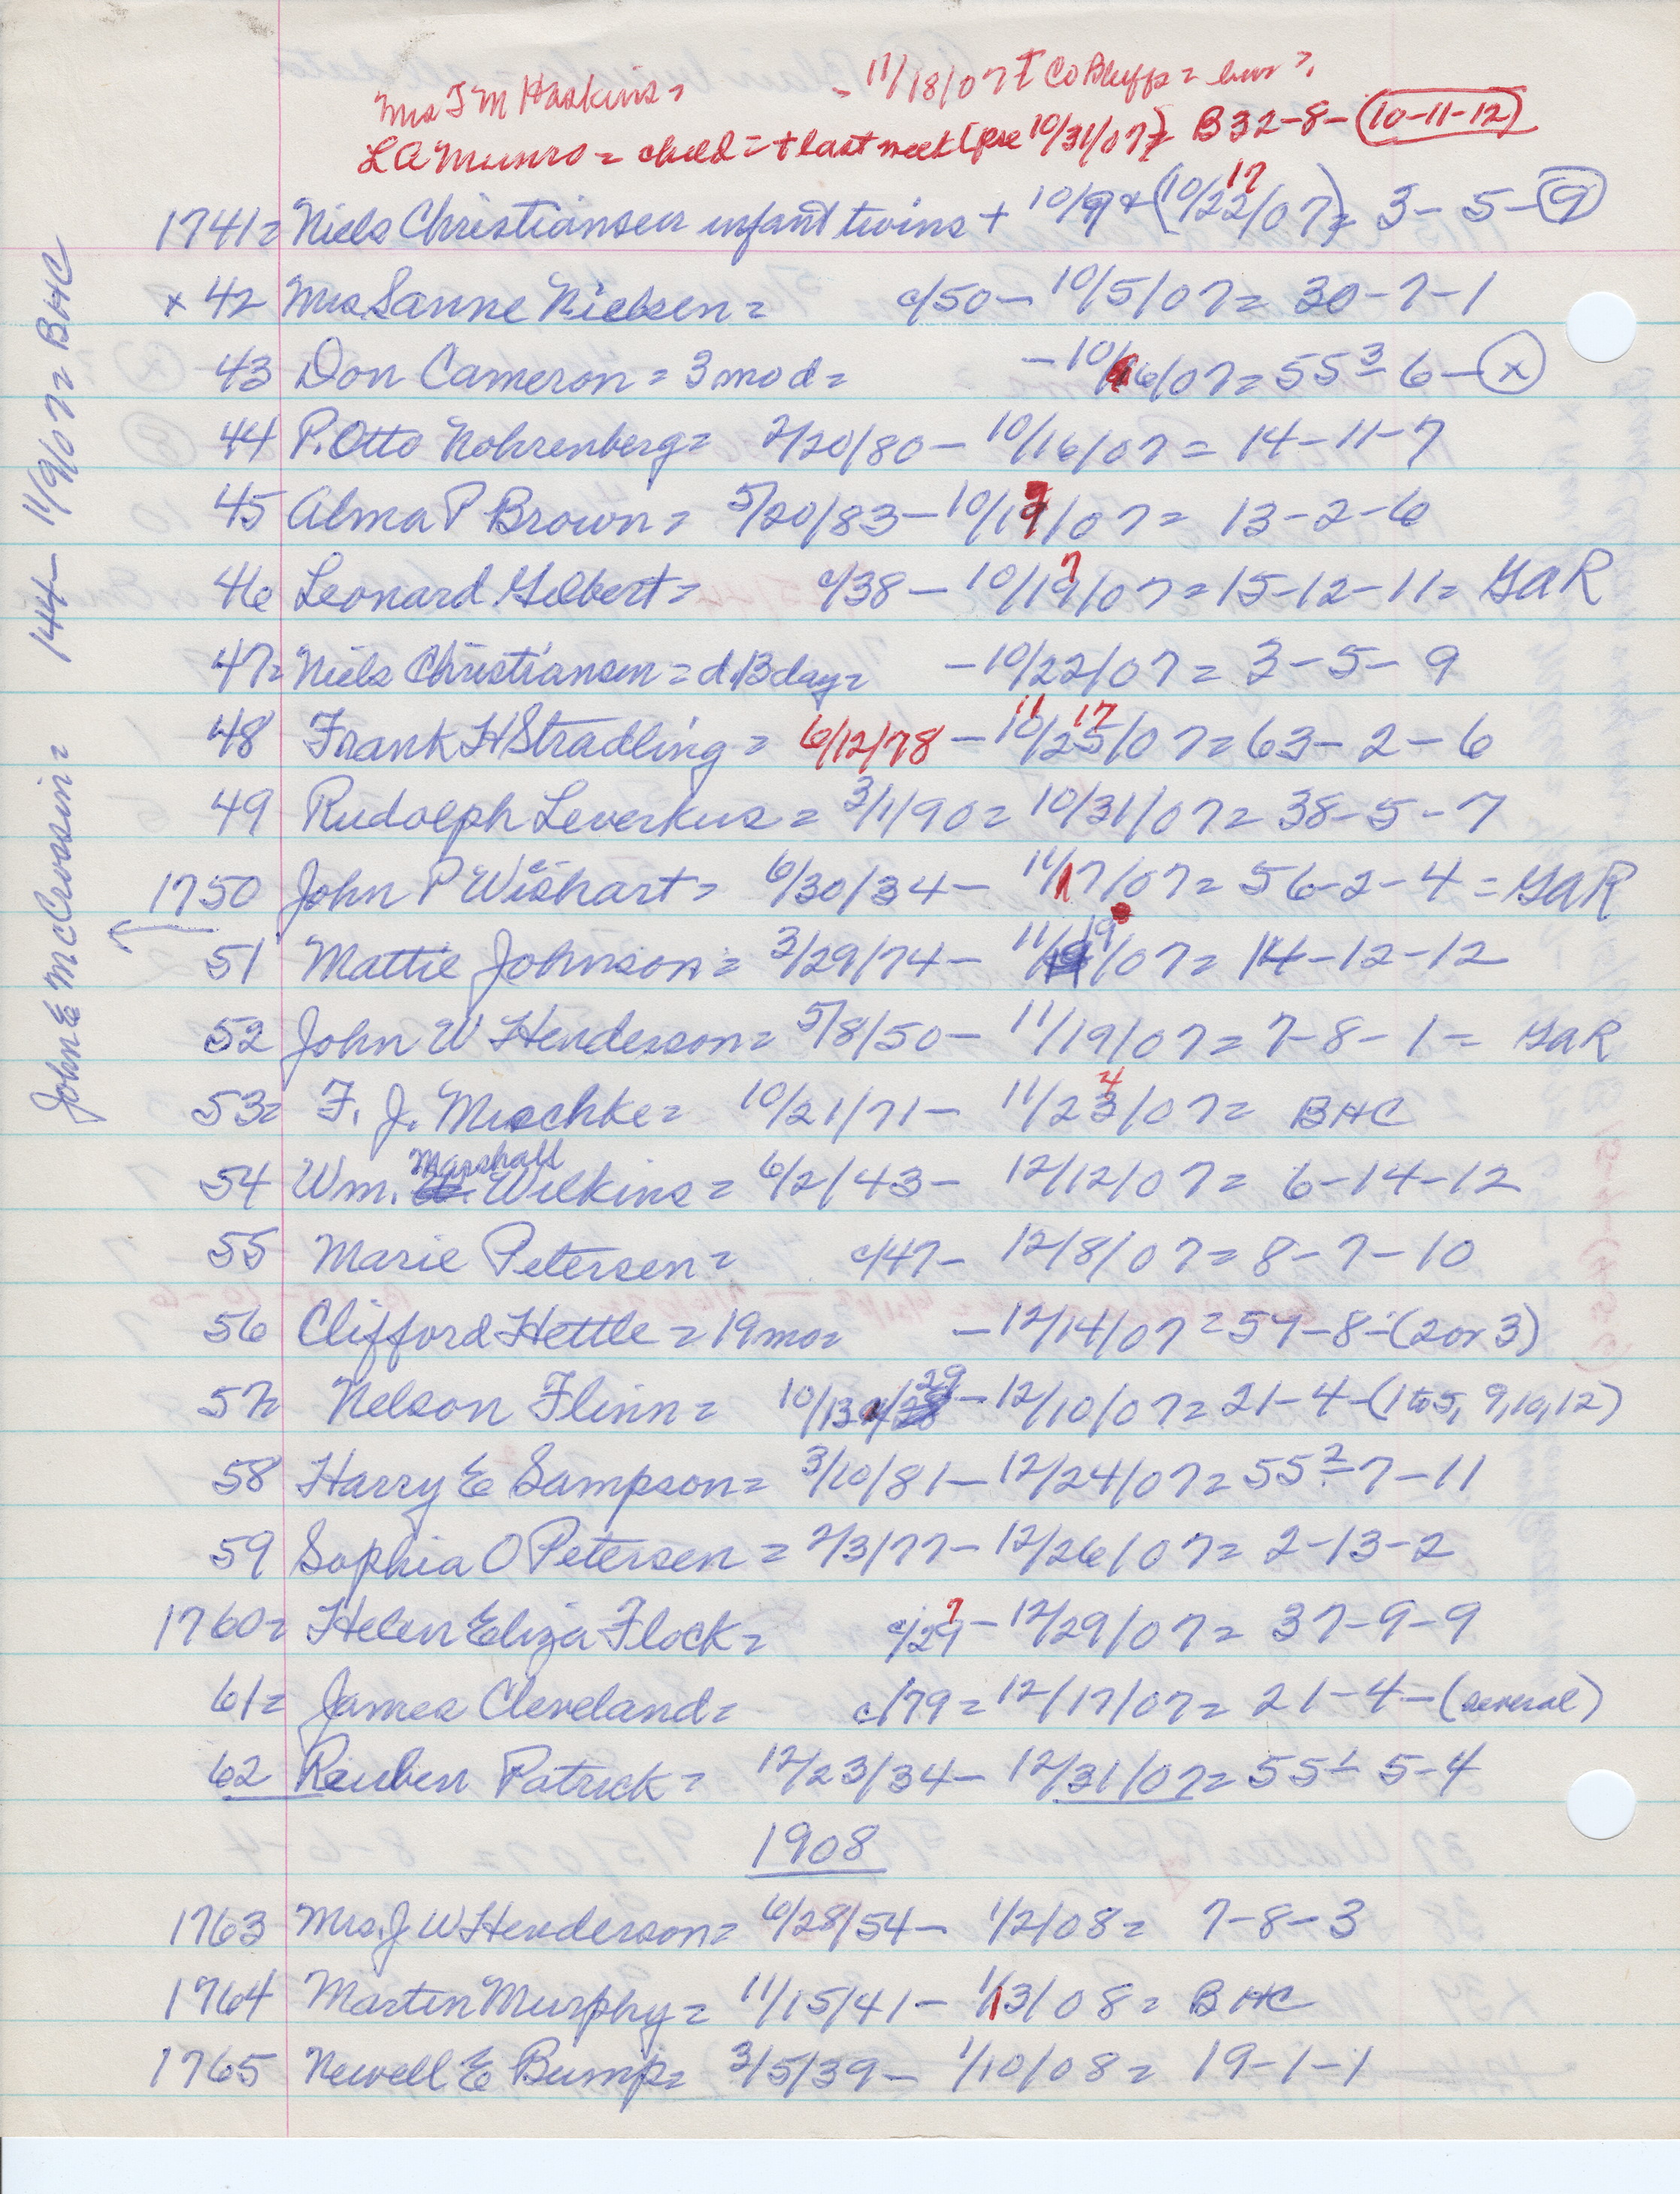 Mrs T M Haskins = - 11/18/07 I Co Bluffs =
L A Munro = child = + last week (pre 10/31/07) = B 32-8-(10-11-12)
1741 = Niels Christiansen infant twins + 10/9 + (10/22/07) = 17 3-5-9
x 42 Mrs Sanne Nielsen = c/50 - 10/5/07 = 30-7-1
43 Don Cameron = 3 mo d = - 10/6/07 = 55 3-6-x
44 P. Otto Nohrenberg = 2/20/80 - 10/16/07 = 14-11-7
45 Alma P Brown = 5/20/83 - 10/19/07 = 13-2-6
46 Leonard Gilbert = c/38 - 10/19/07 = 7 15-12-11 = GAR
47 = Niels Christiansen = d. 13 day = - 10/22/07 = 3-5-9
48 Frank H Stradling = 6/12/78 - 10/25/07 = 11 17 63-2-6
49 Rudolph Leverkus = 3/1/90 = 10/31/07 = 38-5-7
1750 John P Wishart = 6/30/34 - 11/17/07 = 56-2-4 = GAR
51 Mattie Johnson = 3/29/74 - 11/19/07 = 14-12-12
52 John W Henderson = 5/8/50 - 11/19/07 = 7-8-1 = GAR
53 = F. J. Mischke = 10/21/71 - 11/23/07 = 4 BHC
54 Wm. Marshall Wilkins = 6/2/43 - 12/12/07 = 6-14-12
55 Marie Petersen = c/47 - 12/8/07 = 8-7-10
56 Clifford Hettle = 19 mo = - 12/14/07 = 54-8-(2 or 3)
57 = Nelson Flinn = 10/13/29 - 12/10/07 = 21-4-(1 to 5, 9, 10, 12)
58 Harry E Sampson = 3/10/81 - 12/24/07 = 55 2-7-11
59 Sophia O Petersen = 2/3/77 - 12/26/07 = 2-13-2
1760 = Helen Eliza Flock = c/29 7 - 12/29/07 = 37-9-9
61 = James Cleveland = c/79 = 12/17/07 = 21-4-(several)
62 Reuben Patrick = 12/23/34 - 12/31/07 = 55 1-5-4
1908
1763 Mrs. J W Henderson = 6/28/54 - 1/2/08 = 7-8-3
1764 Martin Murphy = 11/15/41 - 1/13/08 = BHC
1765 Newell E Bump = 3/5/39 - 1/10/08 = 19-1-1
John E McCrossin = 144 - 11/9/07 = BHC